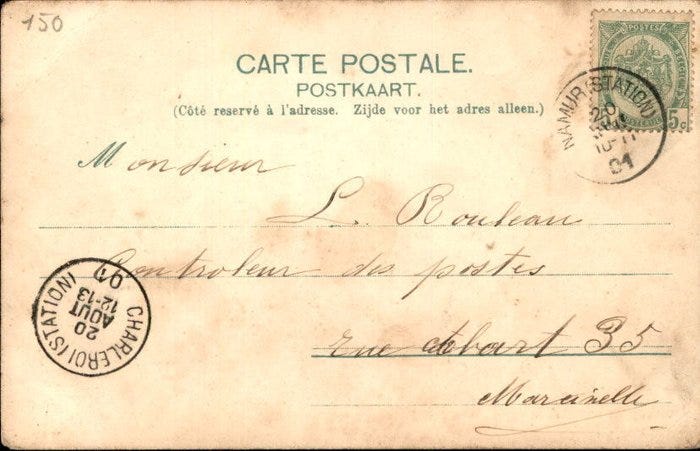 150
CARTE POSTALE.
POSTKAART.
(Côté reservé à l'adresse. Zijde voor het adres alleen.)
POSTES
5c
NAMUR (STATION)
20
10-11
01
Monsieur
L. Rouleau
Controleur des postes
rue 35
Marcinelle
CHARLEROI (STATION)
20
AOUT
12-13
01